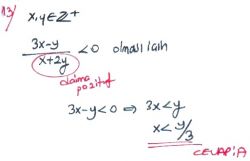 13) x,y∈Z⁺
3x-y / x+2y <0 olmalı için
daima pozitif
3x-y<0 ⇒ 3x<y
x<y/3
CEVAP:A